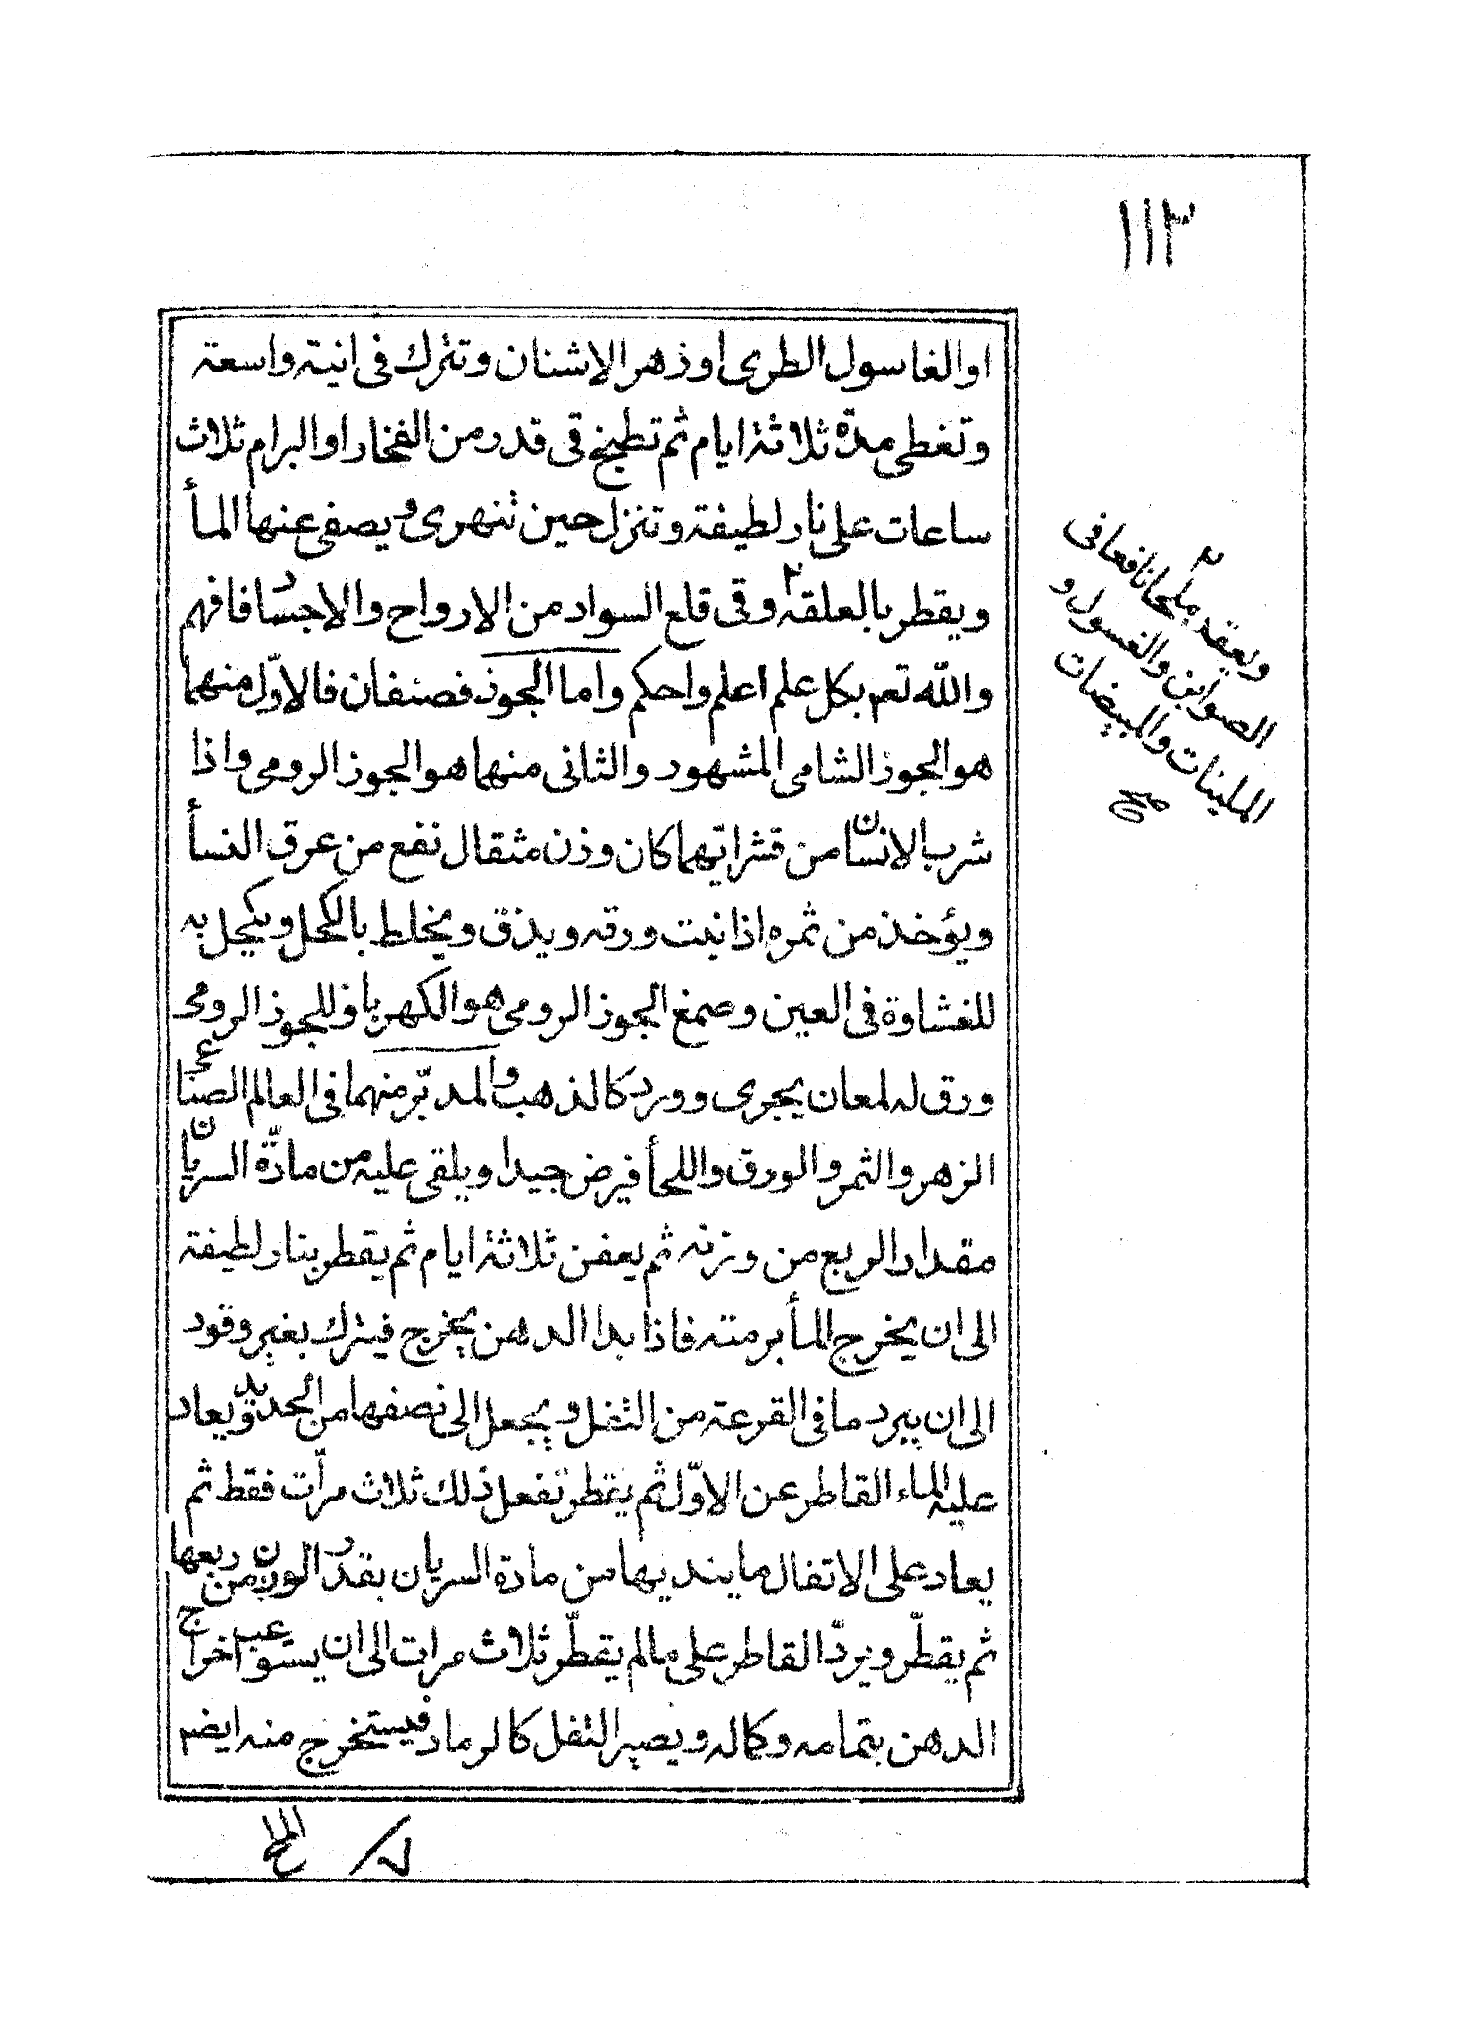 ١١٣
او الغاسول الطرى او ذهر الاشنان وتترك فى انية واسعة
وتغطى مدّة ثلاثة ايام ثم تطبخ فى قدر من الفخار او البرام ثلاث
ساعات على نار لطيفة وتنزل حين تنهرى ويصفى عنها المأ
ويقطر بالعلقة ٢ وفى قلع السواد من الارواح والاجساد فافهم
والله تعم بكل علم اعلم واحكم واما الجوز فصنفان فالاوّل منهما
هو الجوز الشامى المشهود والثانى منهما هو الجوز الرومى واذا
شرب الانسان من قشراتهما كان وذن مثقال نفع من عرق النسأ
ويؤخذ من ثمره اذا نبت ورقه ويذق ويخلط بالكحل ويكحل به
للغشاوة فى العين وصمغ الجوز الرومى هو الكهربا وللجوز الرومى
ورق له لمعان يجرى وورد كالذهب والمدبّر منهما فى العالم الصناعى
الزهر والثمر والورق واللحأ فيرض جيدا ويلقى عليه من مادّة السريان
مقدار الربع من وزنه ثم يعفن ثلاثة ايام ثم يقطر بنار لطيفة
الى ان يخرج المأ برمته فاذا بدا الدهن يخرج فيترك بغير وقود
الى ان يبرد ما فى القرعة من الثفل ويجعل الى نصفها من الحديد ويعاد
عليه الماء القاطر عن الاوّل ثم يقطر تفعل ذلك ثلاث مرّات فقط ثم
يعاد على الاتفال ما ينديها من مادة السريان بقدر الوزن من ربعها
ثم يقطّر ويردّ القاطر على مالم يقطّر ثلاث مرات الى ان يستوعب اخراج
الدهن بتمامه وكماله ويصير الثفل كالرماد فيستخرج منه ايضم
٢
ويعقد ملحا نافعا فى
الصوابن والغسول و
الملينات والمبيضات
صح
الملح